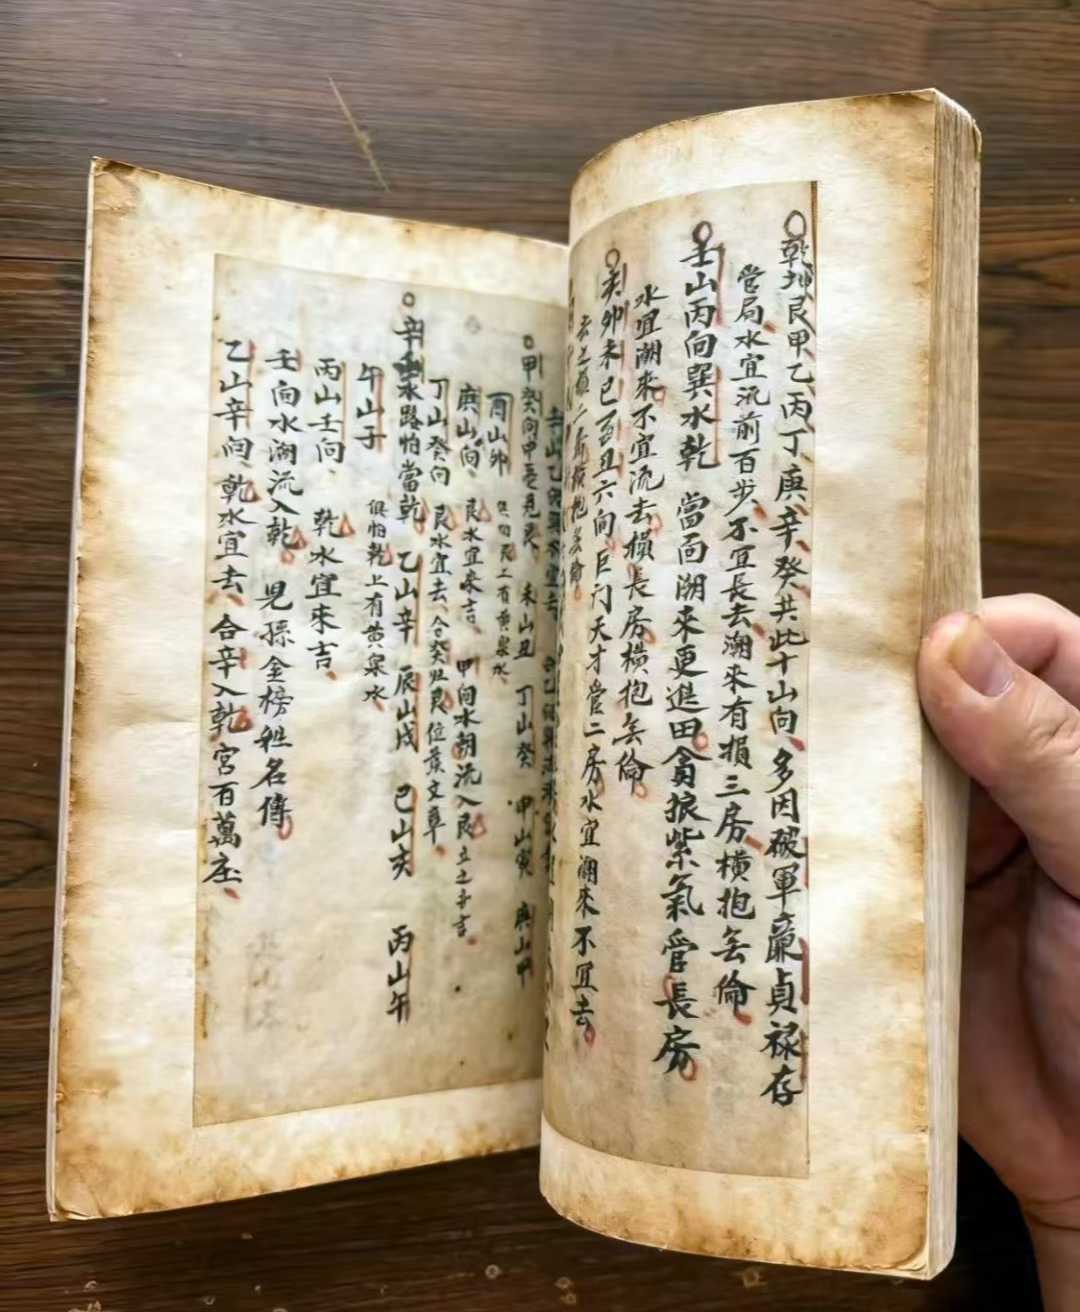 乾坤艮甲乙丙丁庚辛癸共此十山向多因破軍廉貞祿存
管局水宜流前百步不宜長去潮來有損三房橫抱無倫
壬山丙向巽水乾 當面潮來更進田貪狼紫氣管長房
水宜潮來不宜流去損長房橫抱無倫
亥卯未巳酉丑六向巨門天才管二房水宜潮來不宜去
甲癸向中忌見艮 未山丑 丁山癸 甲山寅 庚山甲
酉山卯 俱怕艮上有黃泉水
庚山向 艮水宜來吉 甲向水朝流入艮
丁山癸向 艮水宜去 合癸歸艮位發文章
辛壬水路怕當乾 乙山辛 辰山戌 巳山亥 丙山午
午山子 俱怕乾上有黃泉水
丙山壬向 乾水宜來吉
壬向水潮流入乾 兒孫金榜姓名傳
乙山辛向 乾水宜去 合辛入乾宮百萬庄